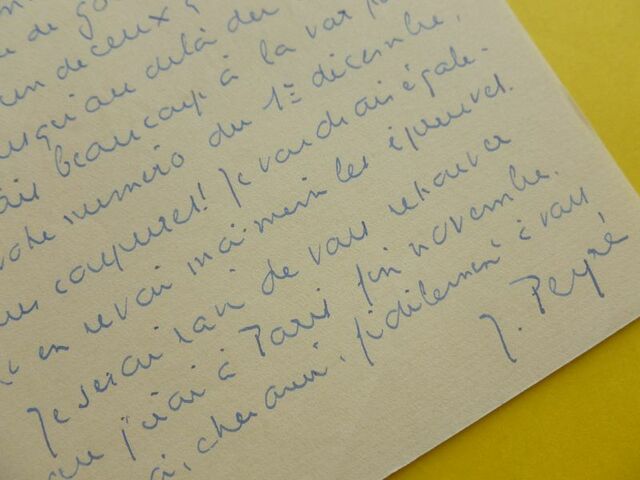 de
un de ceux
jusqu'au delà des
beaucoup à la
votre numéro du 1er décembre,
coupures! Je voudrais égale-
en revoir moi-même les épreuves.
Je serai ravi de vous retrouver
que j'irai à Paris fin novembre.
cher ami, fidèlement à vous
J. Peyré